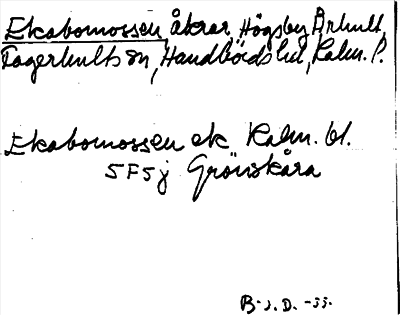 Ekabomossen, åkrar, Högsby, Århult,
Fagerhults sn, Handbörds hd, Kalm. l.
Ekabomossen ek. Kalm. bl.
5F5j Grönskåra
B. J. D. -33.